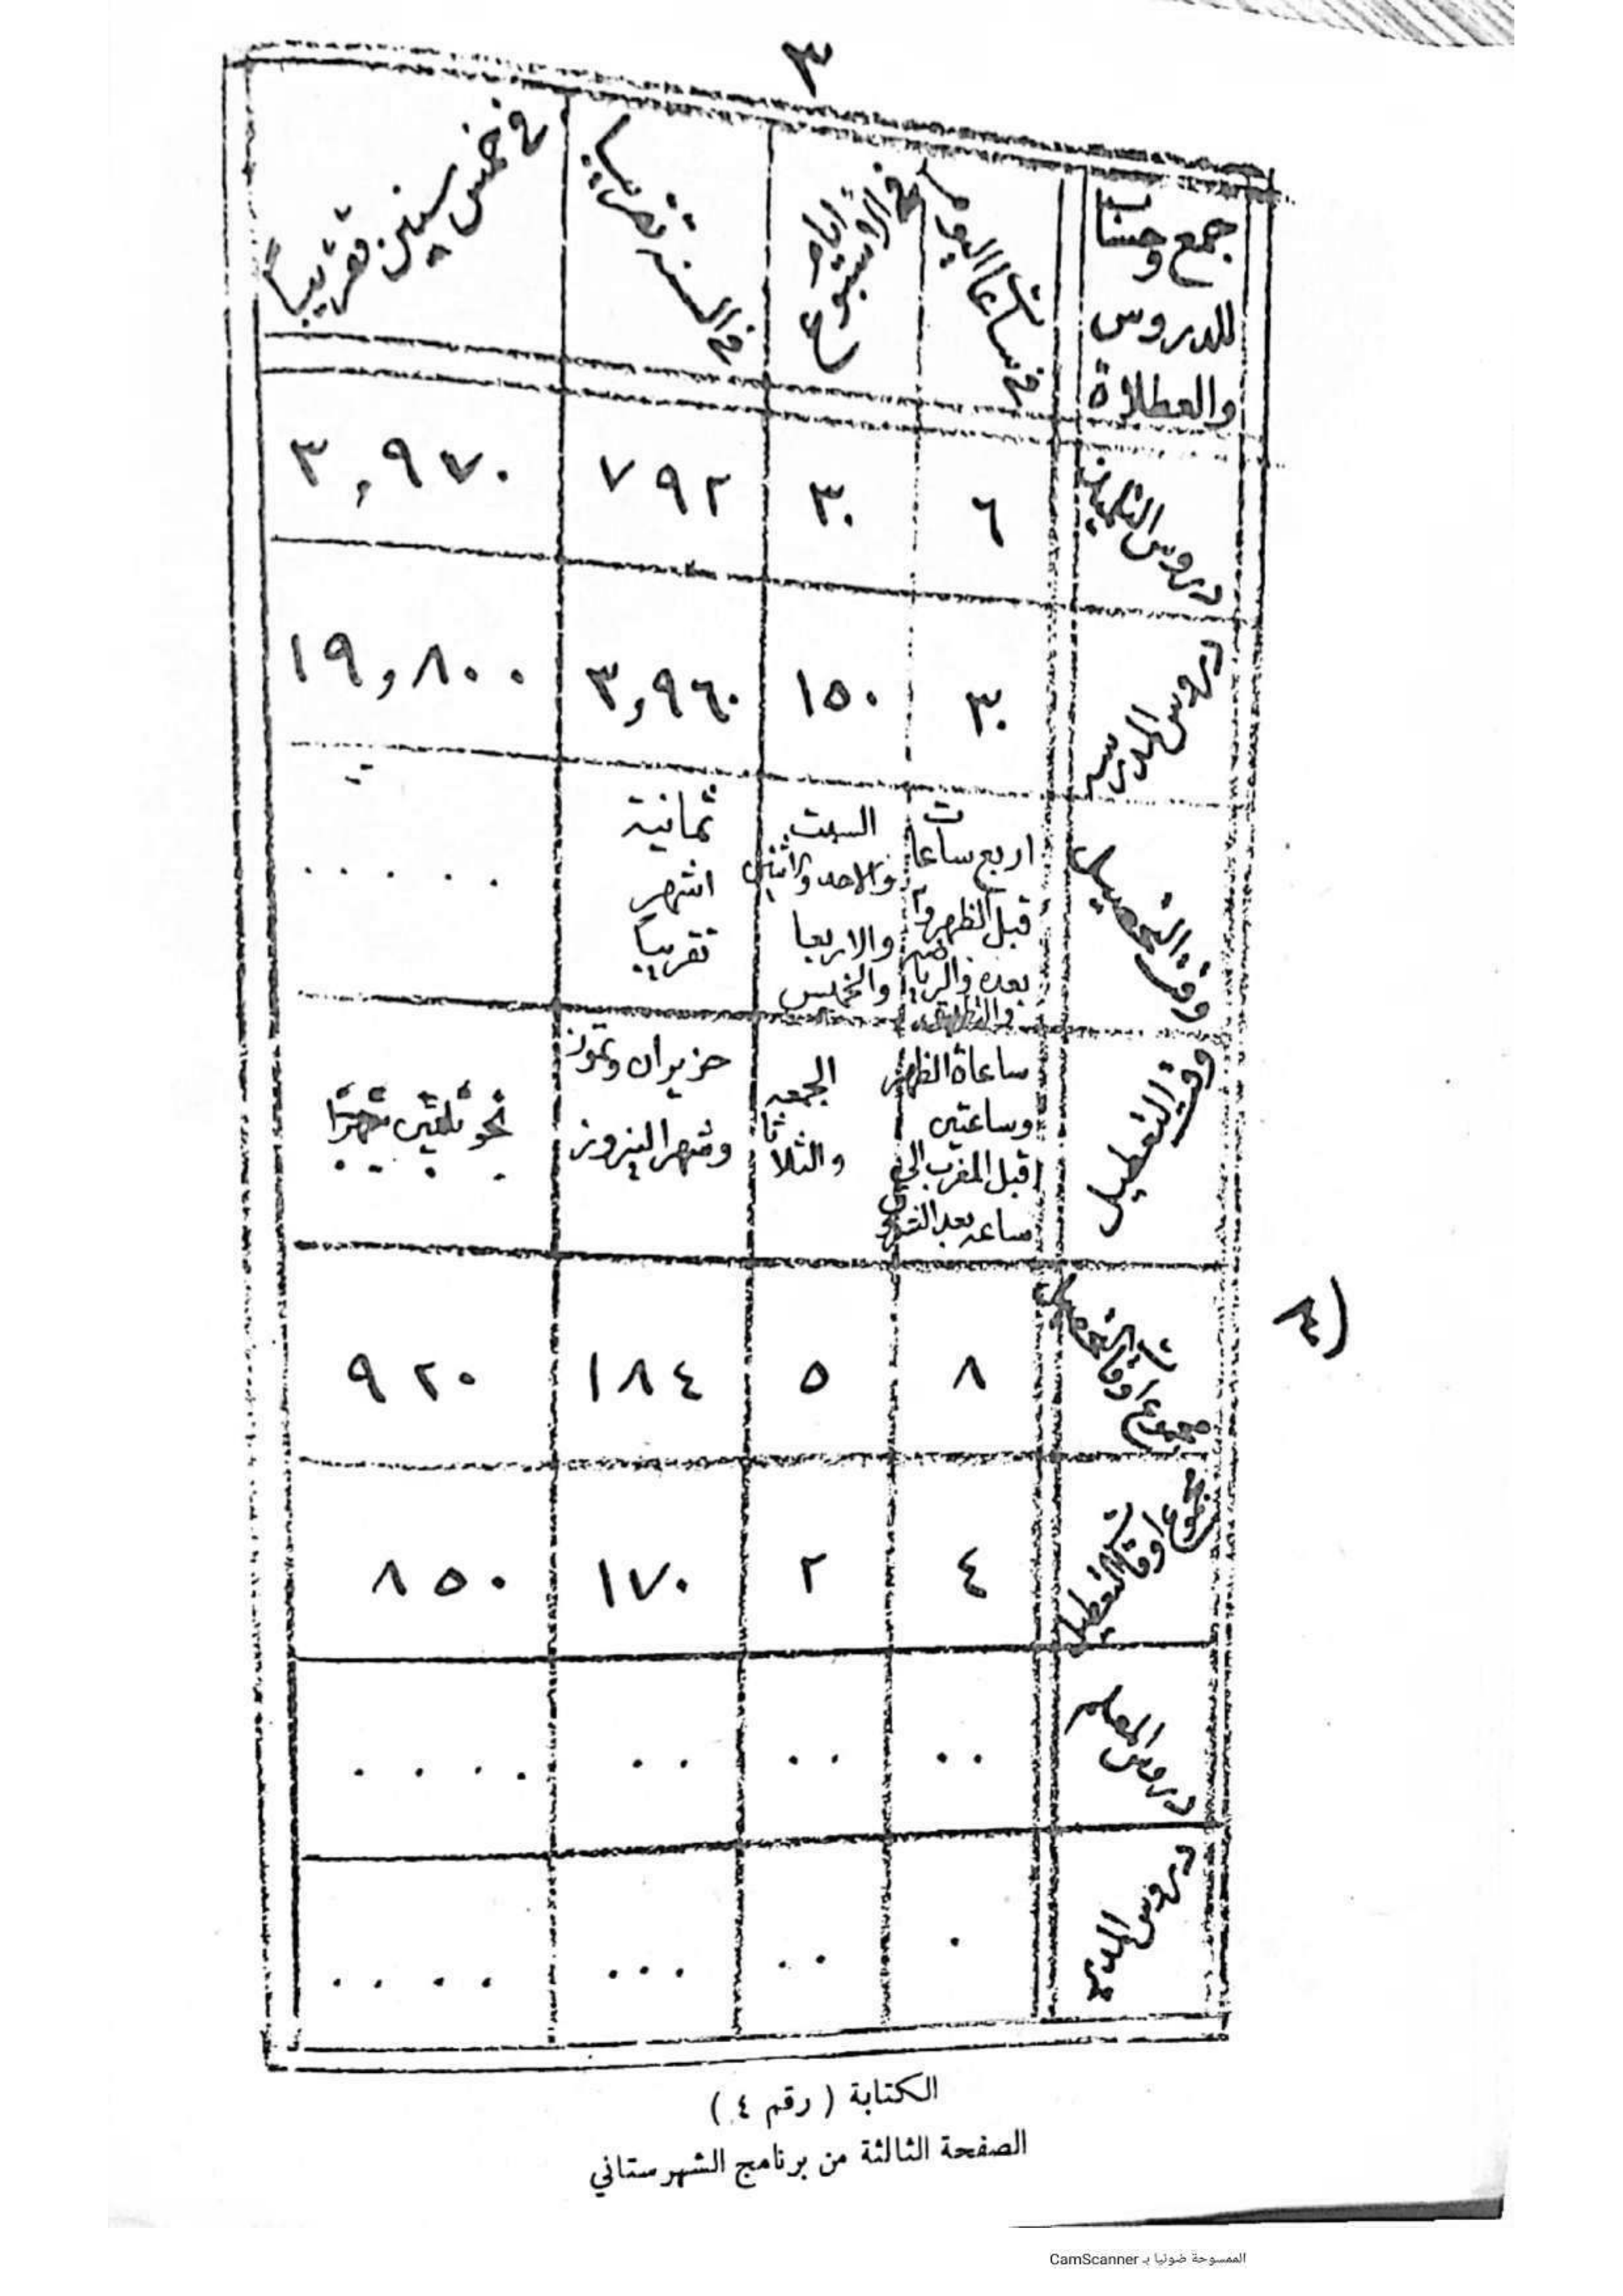 ٣
جمع وحساب للدروس والعطلاة
في ساعات اليوم
في أيام الأسبوع
في السنة تقريباً
في خمس سنين تقريباً
دروس التلميذ
٦
٣٠
٧٩٢
٣,٩٧٠
دروس المدرس
٣٠
١٥٠
٣,٩٦٠
١٩,٨٠٠
وقت التحصيل
اربع ساعات
قبل الظهر و٤
بعده والرياضة
السبت
والاحد والاثنين
والاربعا
والخميس
ثمانية
اشهر
تقريباً
. . . . .
وقت التعطيل
ساعاة الظهر
وساعتين
قبل المغرب الى
ساعه بعد
الجمعه
والثلاثا
حزيران وتموز
وشهر النيروز
نحو ثلثين شهراً
مجموع اوقات التحصيل
٨
٥
١٨٤
٩٢٠
مجموع اوقات التعطيل
٤
٢
١٧٠
٨٥٠
دروس المعلم
. .
. .
. .
. . . .
دروس المدير
.
. .
. . .
. . . .
الكتابة ( رقم ٤ )
الصفحة الثالثة من برنامج الشهرستاني
الممسوحة ضوئيا بـ CamScanner